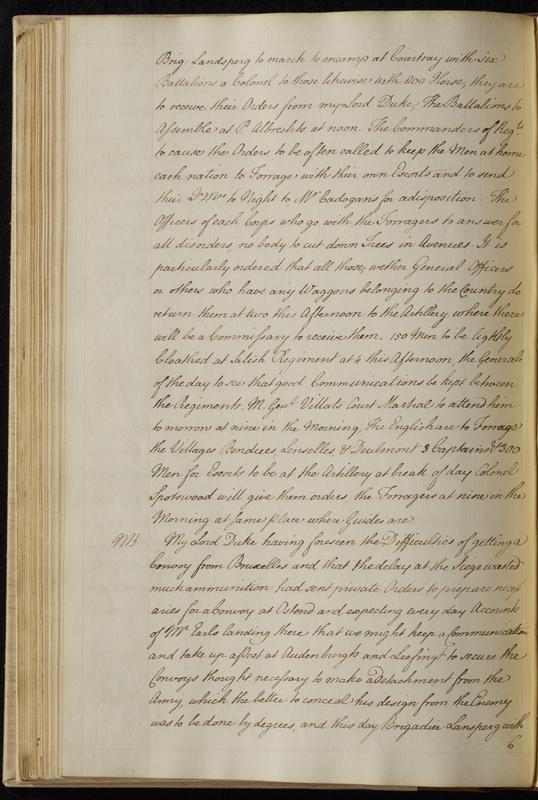 Brig: Landsperg to march to encamp at Courtray with six
Battalions a Colonel to those likewise with 800 Horse, they are
to receive their Orders from my Lord Duke, The Battalions to
Assemble at P. Albrechts at noon. The Commanders of Regts.
to cause the Orders to be often called to keep the Men at home
each nation to Forrage with their own Escorts and to send
their to Night to Mr Cadogans for a disposition. The
Officers of each Corps who go with the Forragers to answer for
all disorders, no body to cut down Trees in Avenues. It is
particularly ordered that all those, wether General Officers
or others who have any Waggons belonging to the Country do
return them at two this Afternoon to the Artillery where there
will be a Commissary to receive them. 150 Men to be lightly
Cloathed at Regiment at 4 this Afternoon, the Generals
of the day to see that good Communications be kept between
the Regiments. M. Genl. Villats Court Martial to attend him
to morrow at nine in the Morning, The English are to Forrage
the Villages Bondues, Lenselles, & Deulmont 3 Captains & 300
Men for Escorts to be at the Artillery at break of day Colonel
Spotswood will give them orders the Forragers at nine in the
Morning at same place where Guides are
NB My Lord Duke having foreseen the Difficulties of getting a
Convoy from Bruxelles and that the delay at the Siege wasted
much ammunition had sent private Orders to prepare necess
aries for a Convoy at Ostend and expecting every day Accounts
of Mr Earls landing there that we might keep a Communication
and take up a Post at Audenburgh and Leefing to secure the
Convoys thought necessary to make a Detachment from the
Army, which the better to conceal his design from the Enemy
was to be done by degrees, and this day Brigadier Lansperg with
6